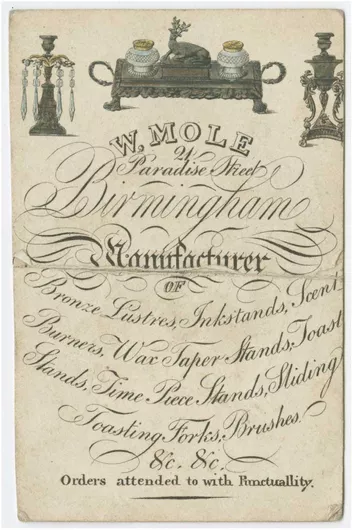 W. MOLE
24
Paradise Street
Birmingham
Manufacturer
OF
Bronze Lustres, Inkstands, Scent
Burners, Wax Taper Stands, Toast
Stands, Time Piece Stands, Sliding
Toasting Forks, Brushes
&c. &c.
Orders attended to with Punctuallity.